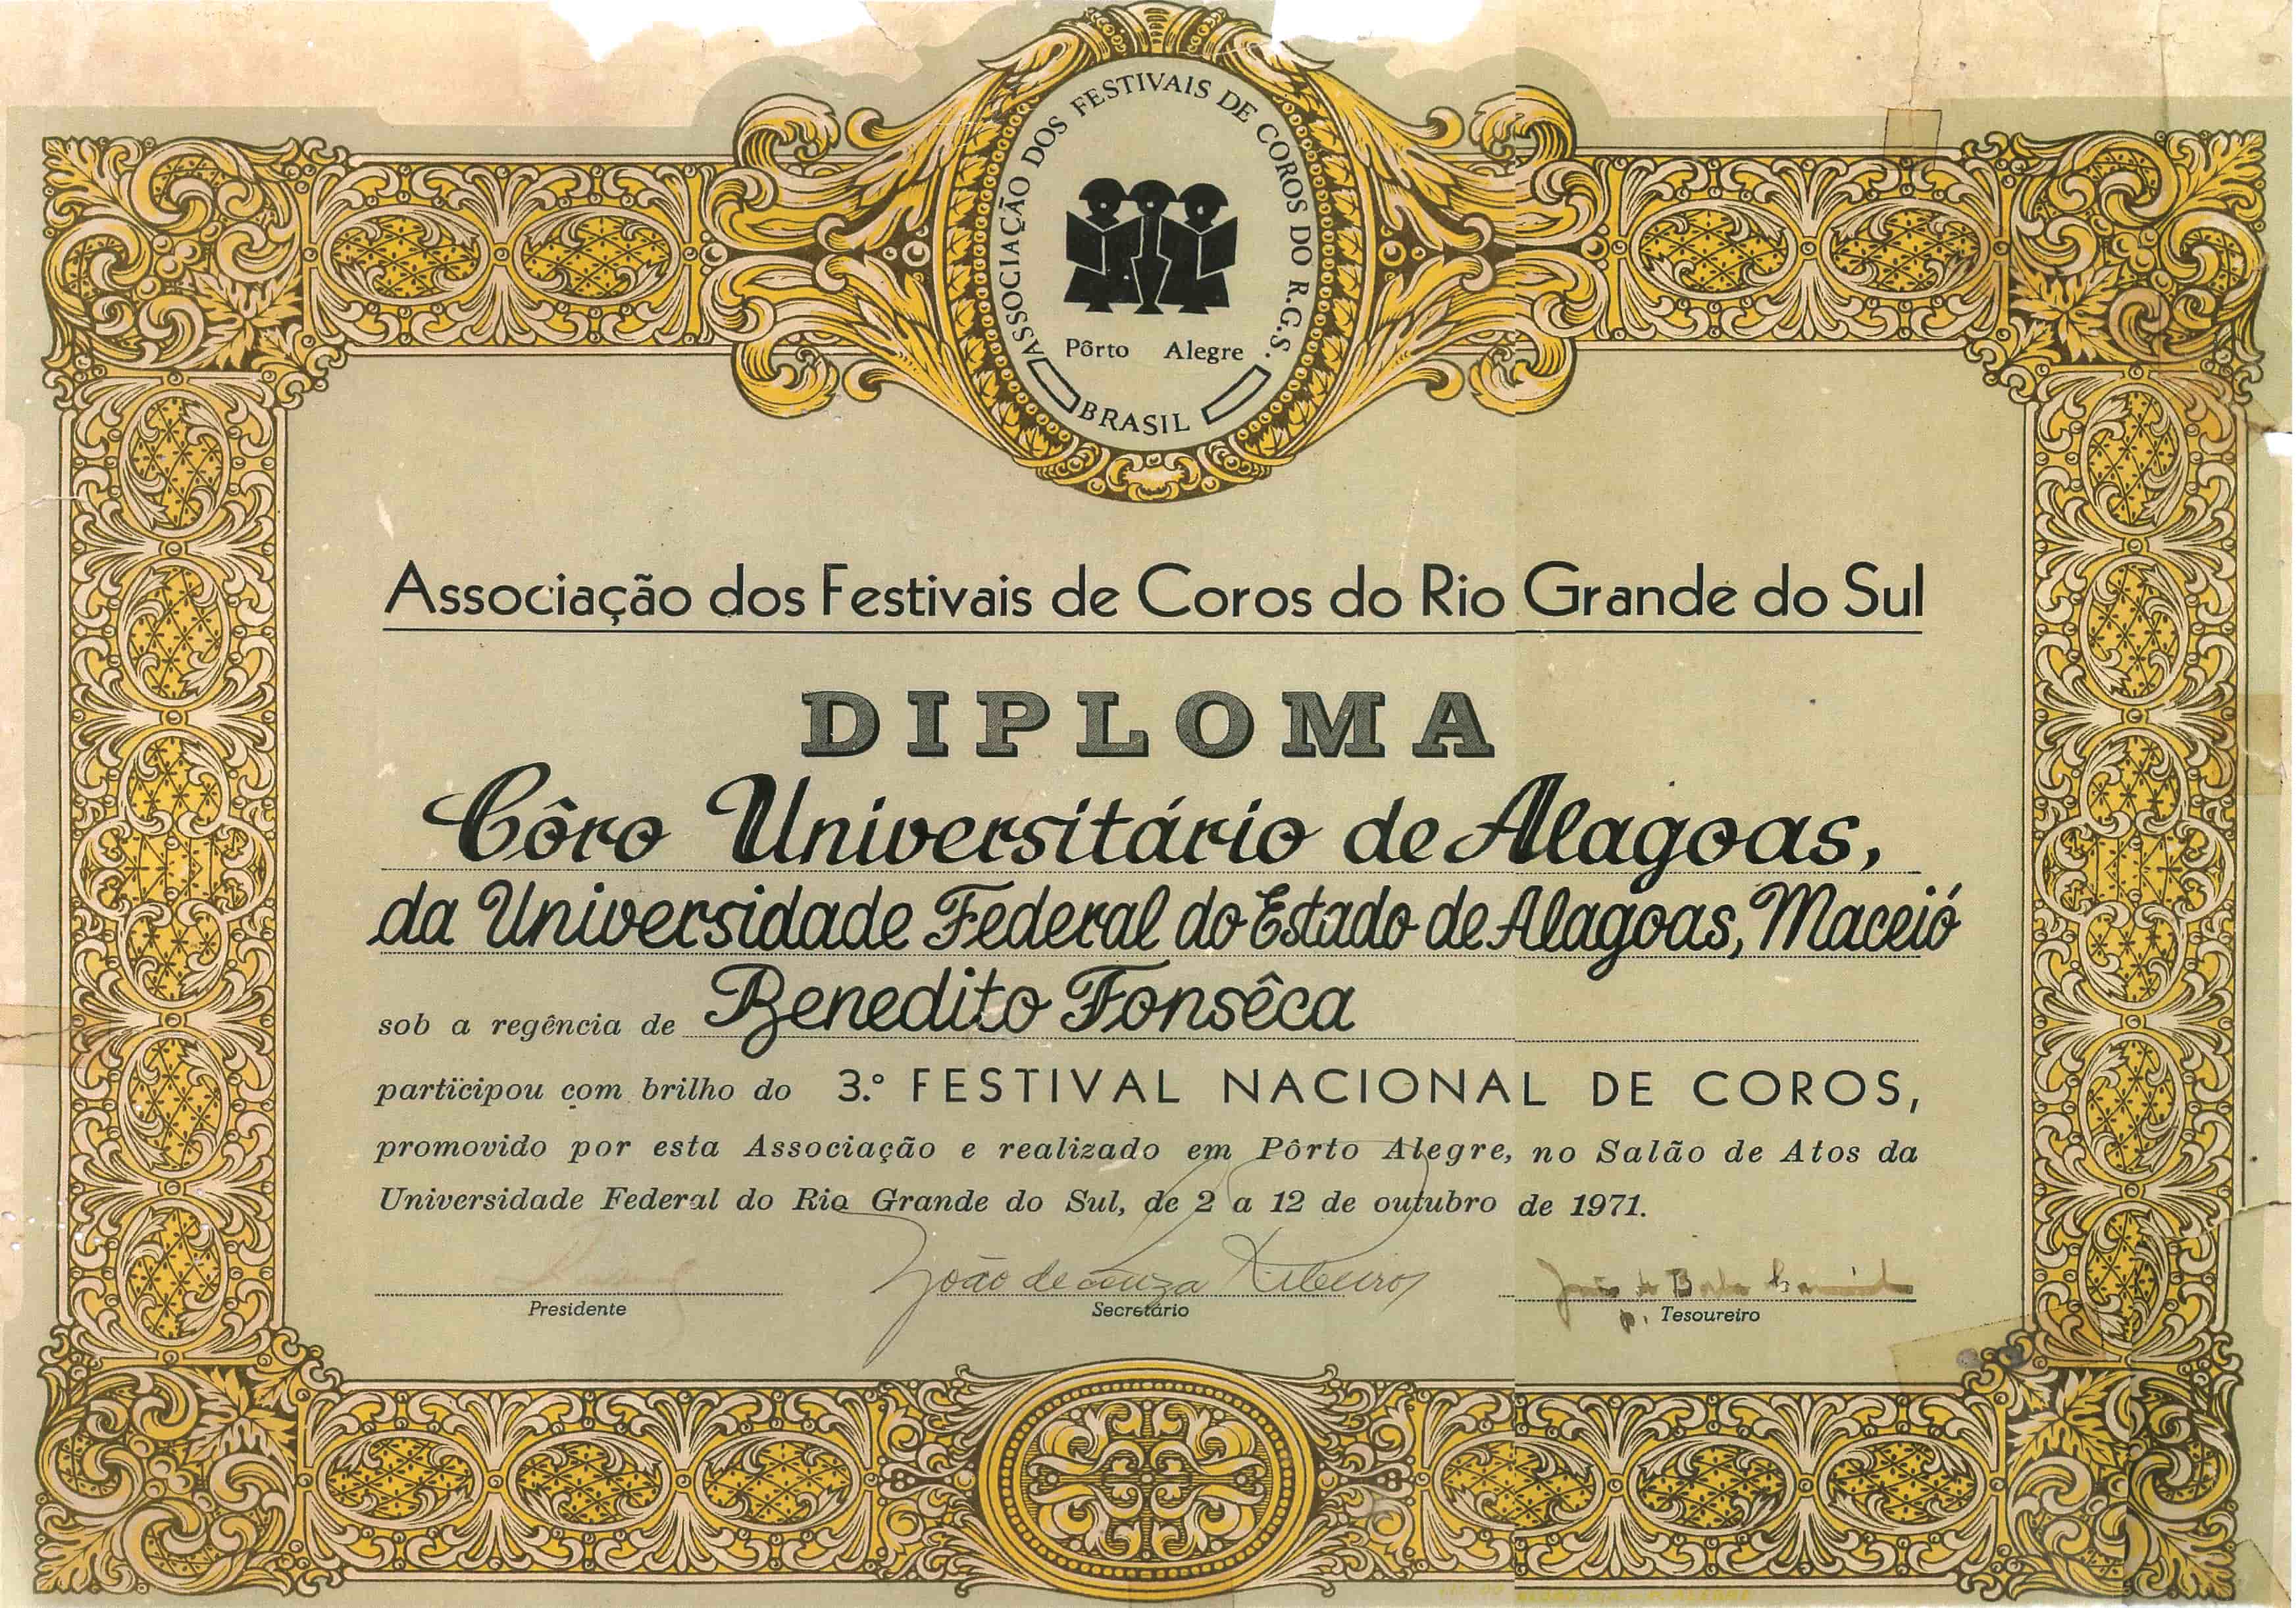 ASSOCIAÇÃO DOS FESTIVAIS DE COROS DO R.G.S.
Pôrto Alegre
BRASIL
Associação dos Festivais de Coros do Rio Grande do Sul
DIPLOMA
Côro Universitário de Alagoas,
da Universidade Federal do Estado de Alagoas, Maceió
sob a regência de Benedito Fonsêca
participou com brilho do 3.º FESTIVAL NACIONAL DE COROS,
promovido por esta Associação e realizado em Pôrto Alegre, no Salão de Atos da
Universidade Federal do Rio Grande do Sul, de 2 a 12 de outubro de 1971.
João de Souza Ribeiro
Presidente Secretário p. Tesoureiro